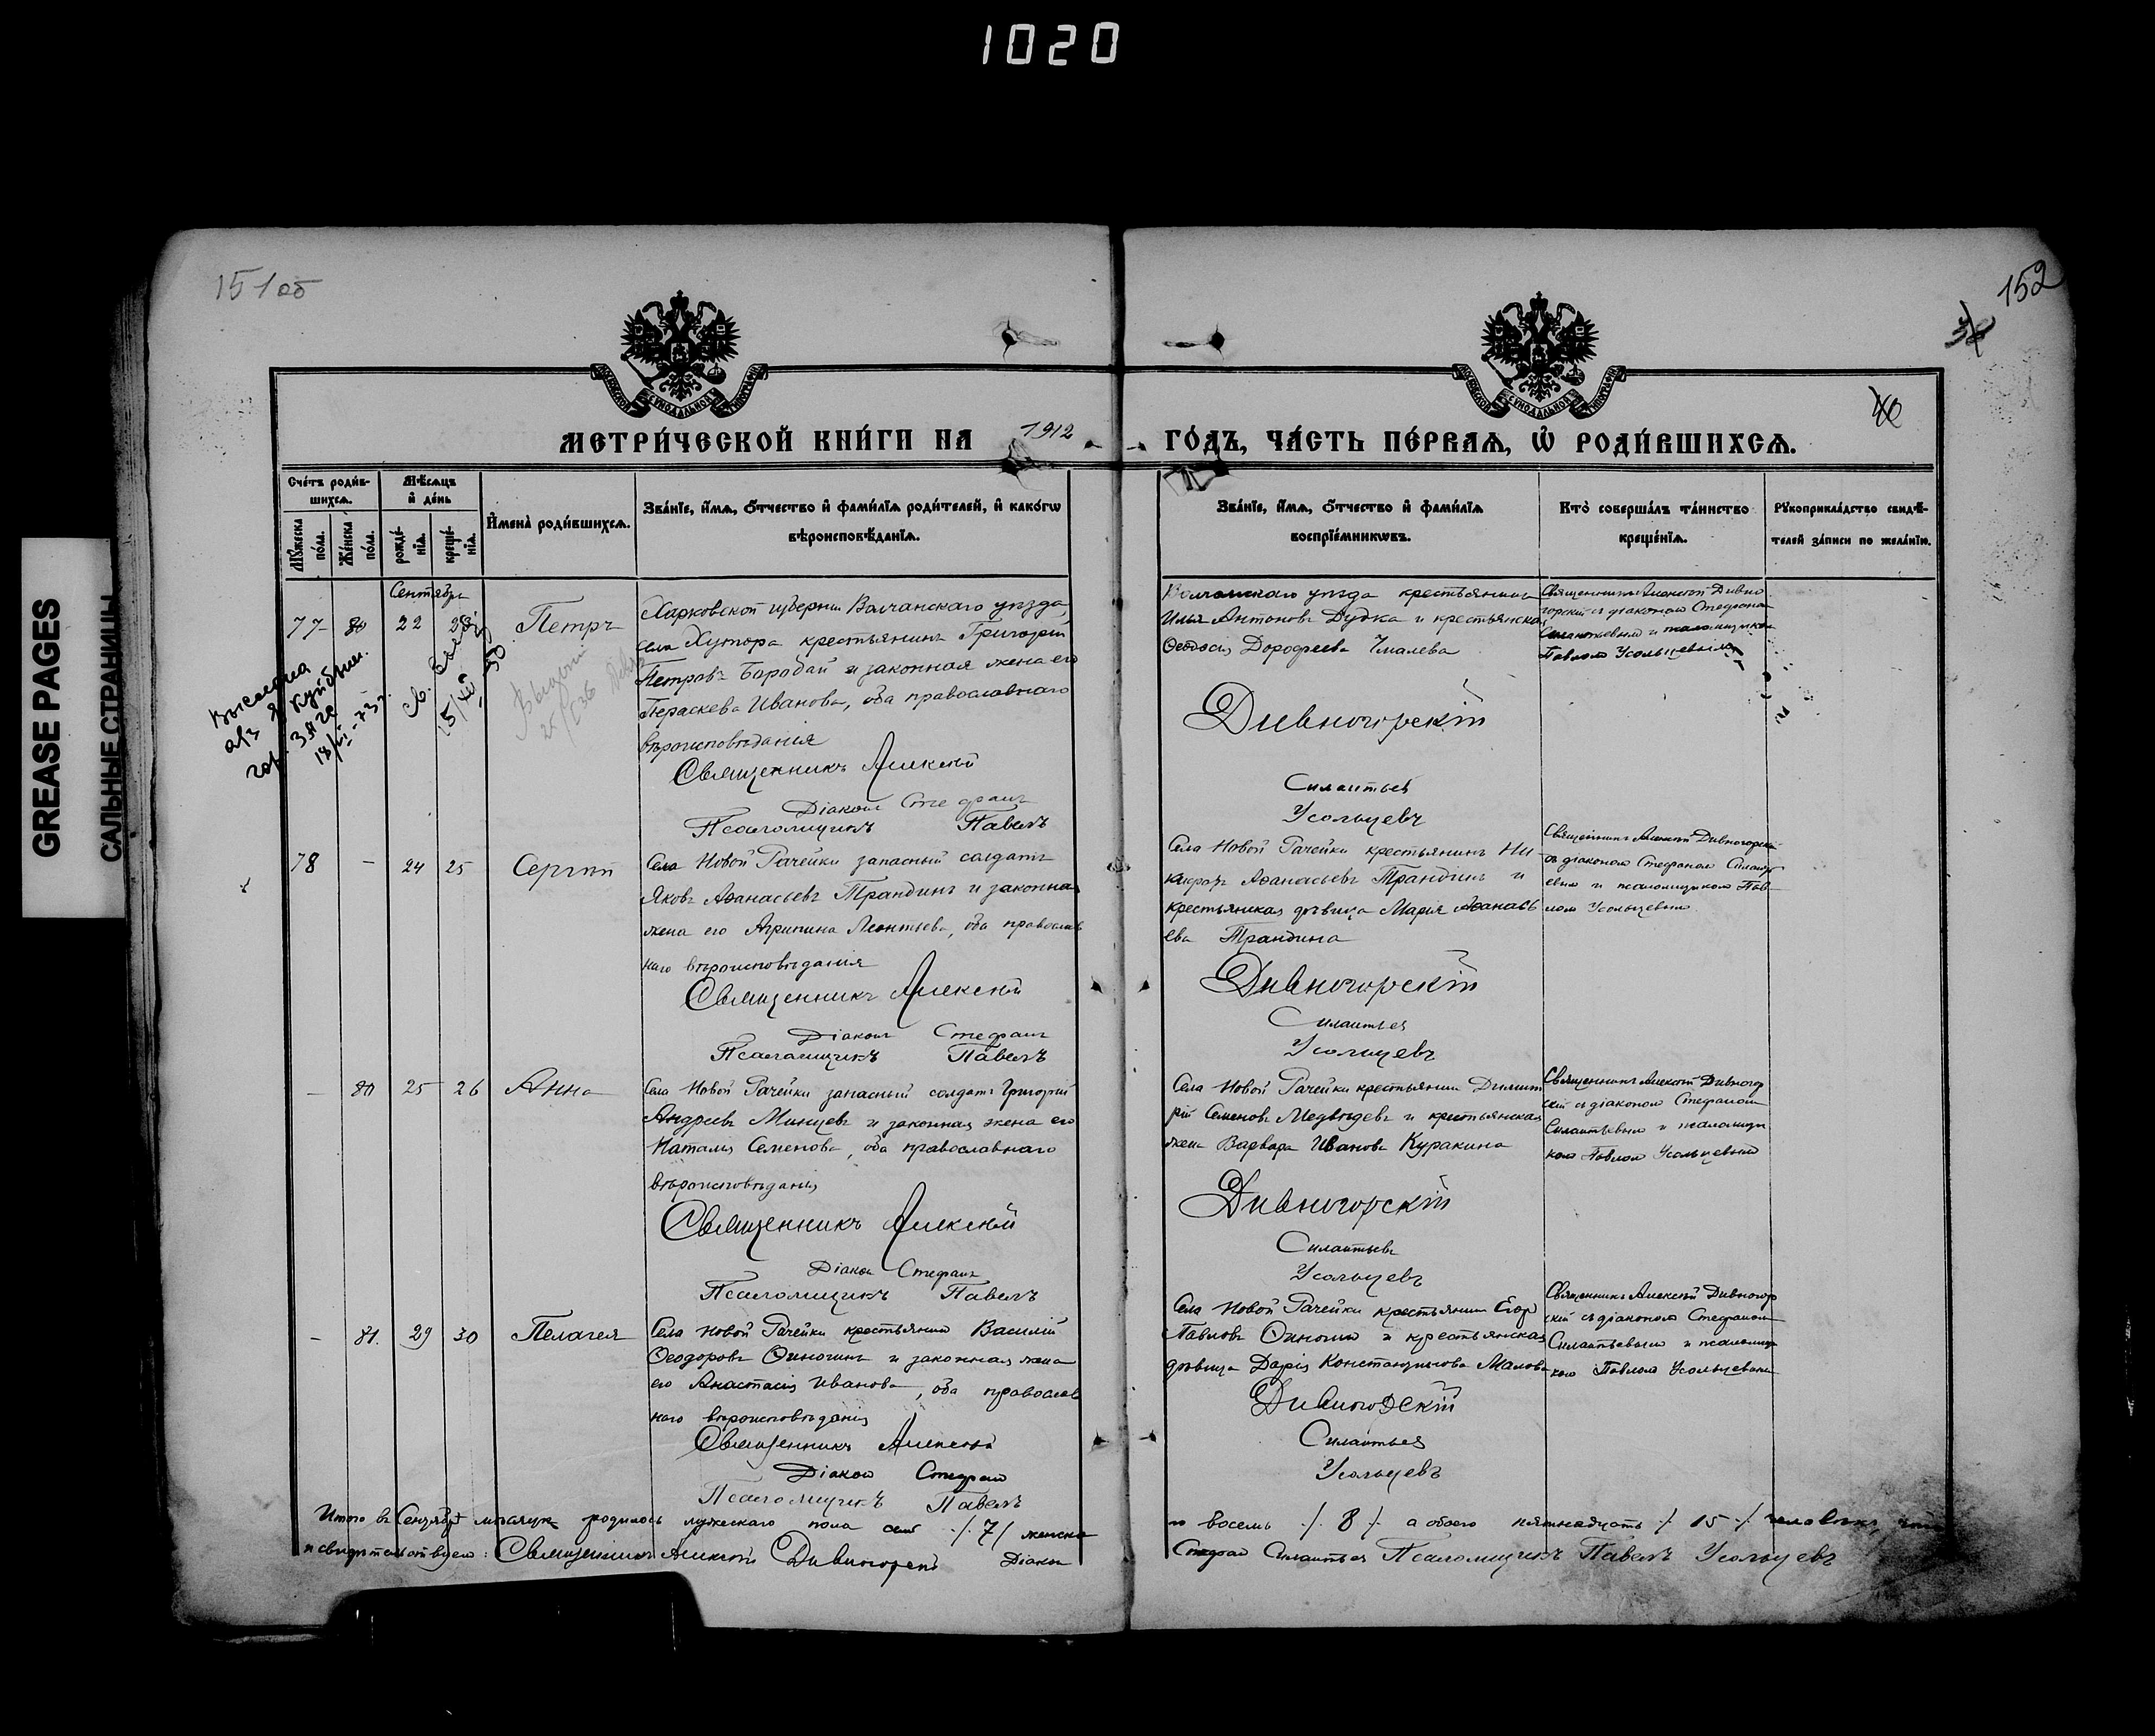 1020
GREASE PAGES
САЛЬНЫЕ СТРАНИЦЫ
151об
152
МЕТРИ́ЧЕСКОЙ КНИ́ГИ НА 1912
ГО́ДЪ, ЧА́СТЬ ПЕ́РВАѦ, Ѽ РОДИ́ВШИХСѦ.
Сче́тъ роди́в-
шихсѧ.
Мѣ́сѧцъ
и҆ де́нь
Мꙋ́жеска по́ла.
Же́нска по́ла.
рожде́-нїѧ.
креще́-нїѧ.
И҆мена̀ роди́вшихсѧ.
Зва́нїе, и҆́мѧ, ѻ҆́тчество и҆ фами́лїѧ роди́телей, и҆ како́гѡ
вѣроисповѣ́данїѧ.
Зва́нїе, и҆́мѧ, ѻ҆́тчество и҆ фами́лїѧ
воспрїе́мникѡвъ.
Кто̀ соверша́лъ та́инство
креще́нїѧ.
Рꙋкоприкла́дство свидѣ́-
телей за́писи по жела́нїю.
Сентябрь
77 80 22 23 Петръ
Харковской губернии Волчанскаго уѣзда,
села Хутора крестьянинъ Григорій
Петровъ Бородай и законная жена его
Параскева Иванова, оба православнаго
вѣроисповѣданія
Священникъ Алексій
Діаконъ Стефанъ
Псаломщикъ Павелъ
Волчанскаго уѣзда крестьянинъ
Илья Антоновъ Дудка и крестьянская
Ѳеодосія Дорофеева
Священникъ Алексій Дивно
горскій съ діакономъ Стефаномъ
Силантьевымъ и псаломщикомъ
Павломъ Усольцевымъ
Дивногорскій
Силантьев
Усольцевъ
78 - 24 25 Сергій
Села Новой Рачейки запасный солдатъ
Яковъ Аѳанасьевъ Трандинъ и законная
жена его Агрипина Леонтьева, оба православ
наго вѣроисповѣданія
Священникъ Алексій
Діаконъ Стефанъ
Псаломщикъ Павелъ
Села Новой Рачейки крестьянинъ Ни-
кифоръ Аѳанасьевъ Трандинъ и
крестьянская дѣвица Марія Аѳанась
ева Трандина
Священникъ Алексій Дивногорскій
съ діакономъ Стефаномъ Силанть
евымъ и псаломщикомъ Пав-
ломъ Усольцевымъ
Дивногорскій
Силантьев
Усольцевъ
- 80 25 26 Анна
Села Новой Рачейки запасный солдатъ Григорій
Андреевъ Минцевъ и законная жена его
Наталія Семенова, оба православнаго
вѣроисповѣданія
Священникъ Алексій
Діаконъ Стефанъ
Псаломщикъ Павелъ
Села Новой Рачейки крестьянинъ Димит
рій Семеновъ Медвѣдевъ и крестьянская
жена Варвара Иванова Куракина
Священникъ Алексій Дивногор
скій съ діакономъ Стефаномъ
Силантьевымъ и псаломщи
комъ Павломъ Усольцевымъ
Дивногорскій
Силантьевъ
Усольцевъ
- 81. 29 30 Пелагея
Села Новой Рачейки крестьянинъ Василій
Ѳеодоровъ Финогинъ и законная жена
его Анастасія Иванова, оба православ
наго вѣроисповѣданія
Священникъ Алексій
Діаконъ Стефанъ
Псаломщикъ Павелъ
Села Новой Рачейки крестьянинъ Егор
Павловъ Финогинъ и крестьянская
дѣвица Дарія Константинова Малова
Священникъ Алексій Дивногор
скій съ діакономъ Стефаномъ
Силантьевымъ и псаломщи
комъ Павломъ Усольцевымъ
Дивногорскій
Силантьев
Усольцевъ
Итого въ Сентябрѣ мѣсяцѣ родилось мужескаго пола семь ./. 7 / женска
го восемь ./. 8 /. а обоего пятнадцать ./. 15 ./. человѣкъ, что
и свидѣтельствуемъ: Священникъ Алексій Дивногорскій Діаконъ
Стефан Силантьев Псаломщикъ Павелъ Усольцевъ